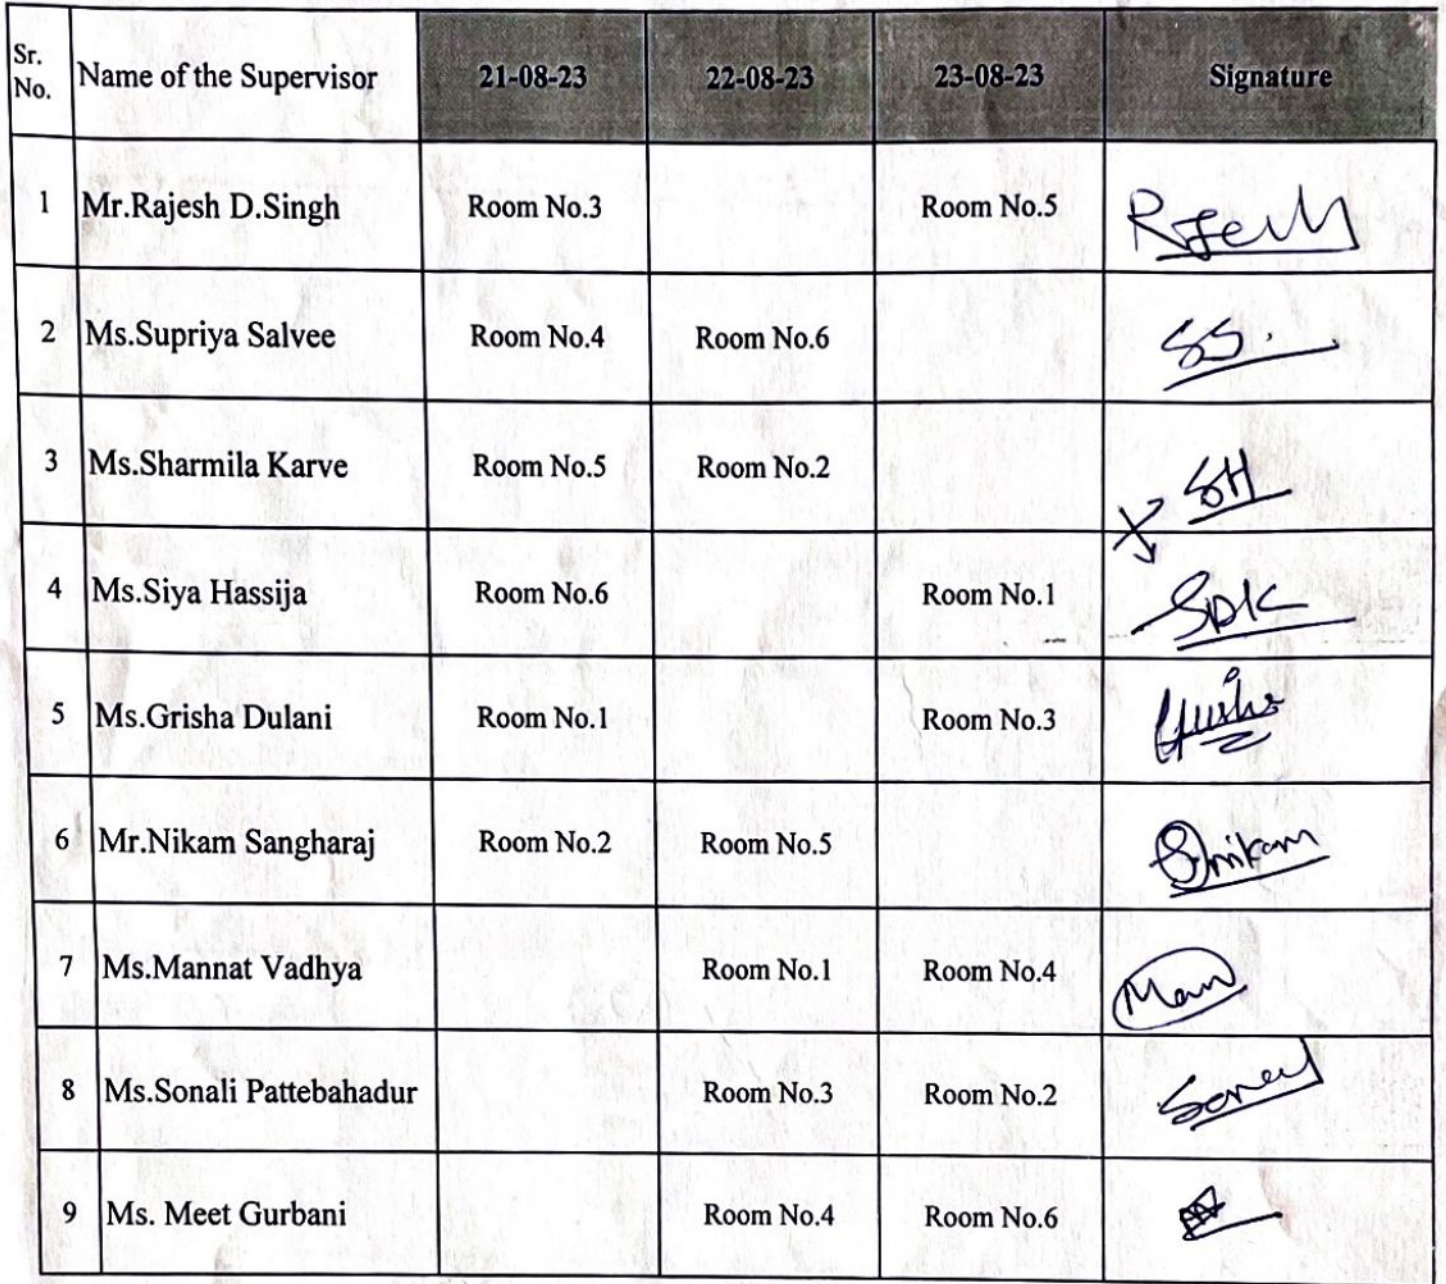 Sr. No. Name of the Supervisor 21-08-23 22-08-23 23-08-23 Signature
1 Mr.Rajesh D.Singh Room No.3 Room No.5
2 Ms.Supriya Salvee Room No.4 Room No.6 SS.
3 Ms.Sharmila Karve Room No.5 Room No.2 SH
4 Ms.Siya Hassija Room No.6 Room No.1 SDK
5 Ms.Grisha Dulani Room No.1 Room No.3
6 Mr.Nikam Sangharaj Room No.2 Room No.5
7 Ms.Mannat Vadhya Room No.1 Room No.4
8 Ms.Sonali Pattebahadur Room No.3 Room No.2
9 Ms. Meet Gurbani Room No.4 Room No.6